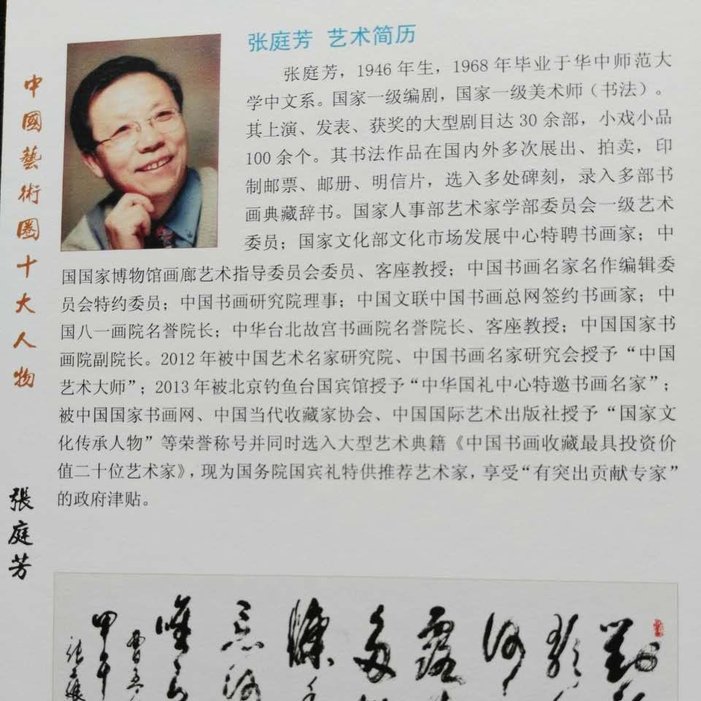 中國藝術圈十大人物
張庭芳
张庭芳 艺术简历
张庭芳，1946 年生，1968 年毕业于华中师范大
学中文系。国家一级编剧，国家一级美术师（书法）。
其上演、发表、获奖的大型剧目达 30 余部，小戏小品
100 余个。其书法作品在国内外多次展出、拍卖，印
制邮票、邮册、明信片，选入多处碑刻，录入多部书
画典藏辞书。国家人事部艺术家学部委员会一级艺术
委员；国家文化部文化市场发展中心特聘书画家；中
国国家博物馆画廊艺术指导委员会委员、客座教授；中国书画名家名作编辑委
员会特约委员；中国书画研究院理事；中国文联中国书画总网签约书画家；中
国八一画院名誉院长；中华台北故宫书画院名誉院长、客座教授；中国国家书
画院副院长。2012 年被中国艺术名家研究院、中国书画名家研究会授予“中国
艺术大师”；2013 年被北京钓鱼台国宾馆授予“中华国礼中心特邀书画名家”；
被中国国家书画网、中国当代收藏家协会、中国国际艺术出版社授予“国家文
化传承人物”等荣誉称号并同时选入大型艺术典籍《中国书画收藏最具投资价
值二十位艺术家》，现为国务院国宾礼特供推荐艺术家，享受“有突出贡献专家”
的政府津贴。